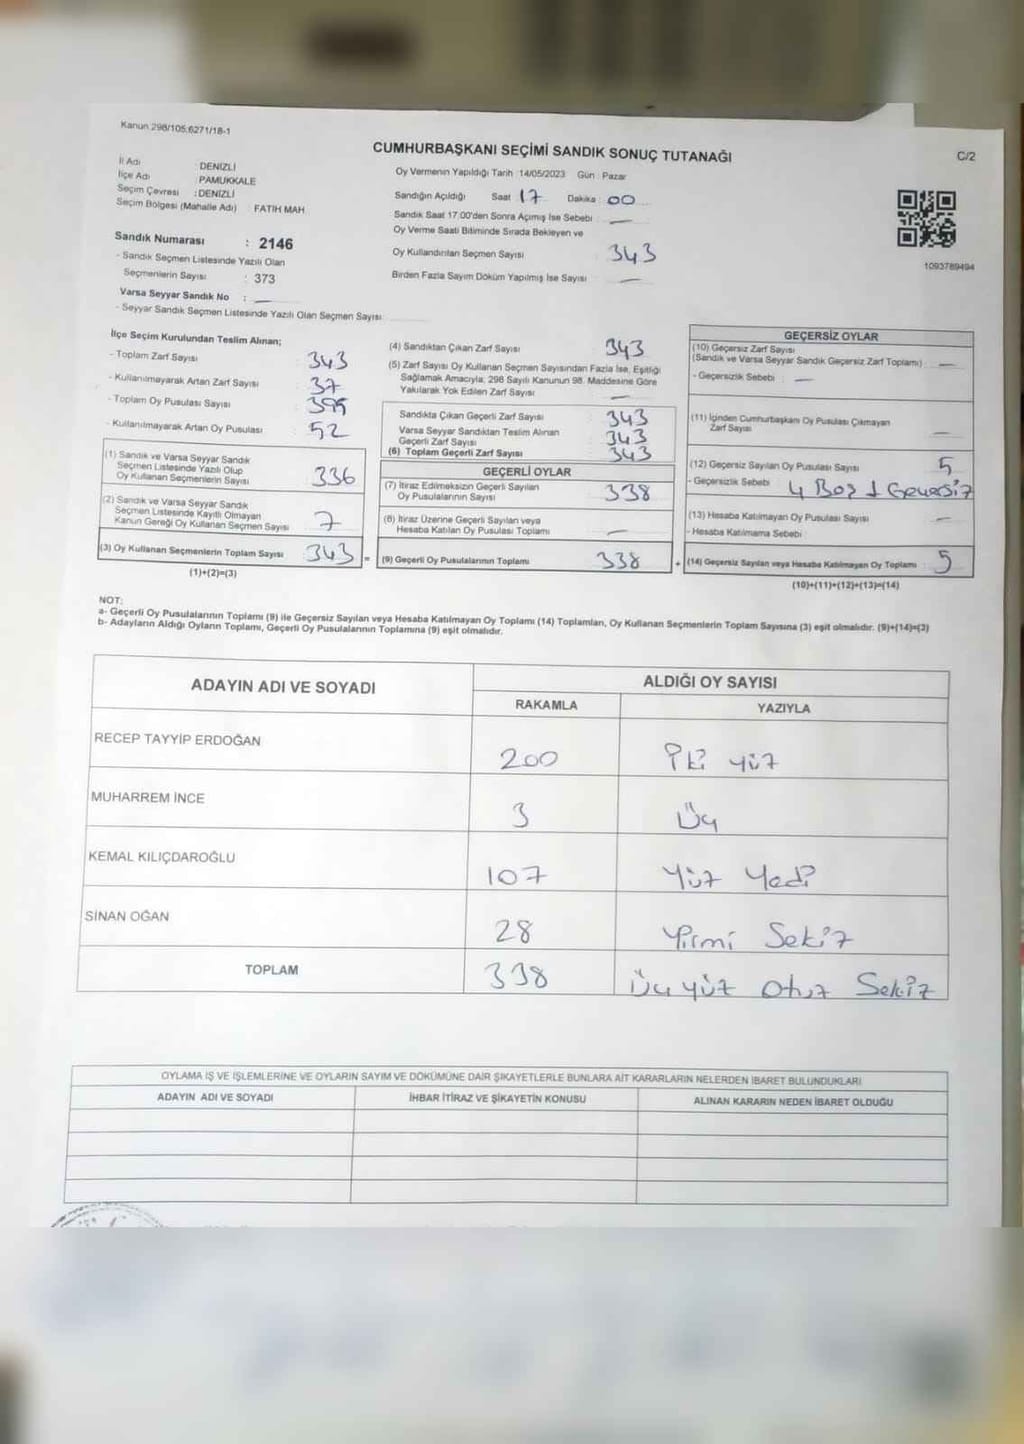 Kanun 298/105;6271/18-1
CUMHURBAŞKANI SEÇİMİ SANDIK SONUÇ TUTANAĞI
C/2
İl Adı : DENİZLİ
İlçe Adı : PAMUKKALE
Seçim Çevresi : DENİZLİ
Seçim Bölgesi (Mahalle Adı) : FATIH MAH
Sandık Numarası : 2146
- Sandık Seçmen Listesinde Yazılı Olan
Seçmenlerin Sayısı : 373
Varsa Seyyar Sandık No : —
- Seyyar Sandık Seçmen Listesinde Yazılı Olan Seçmen Sayısı
Oy Vermenin Yapıldığı Tarih : 14/05/2023 Gün : Pazar
Sandığın Açıldığı Saat 17 Dakika : 00
Sandık Saat 17:00'den Sonra Açımış İse Sebebi : —
Oy Verme Saati Bitiminde Sırada Bekleyen ve
Oy Kullandırılan Seçmen Sayısı 343
Birden Fazla Sayım Döküm Yapılmış İse Sayısı —
1093789494
İlçe Seçim Kurulundan Teslim Alınan;
- Toplam Zarf Sayısı 343
- Kullanılmayarak Artan Zarf Sayısı 37
- Toplam Oy Pusulası Sayısı 395
- Kullanılmayarak Artan Oy Pusulası 52
(1) Sandık ve Varsa Seyyar Sandık
Seçmen Listesinde Yazılı Olup
Oy Kullanan Seçmenlerin Sayısı 336
(2) Sandık ve Varsa Seyyar Sandık
Seçmen Listesinde Kayıtlı Olmayan
Kanun Gereği Oy Kullanan Seçmen Sayısı 7
(3) Oy Kullanan Seçmenlerin Toplam Sayısı : 343 =
(1)+(2)=(3)
(4) Sandıktan Çıkan Zarf Sayısı 343
(5) Zarf Sayısı Oy Kullanan Seçmen Sayısından Fazla İse, Eşitliği
Sağlamak Amacıyla; 298 Sayılı Kanunun 98. Maddesine Göre
Yakılarak Yok Edilen Zarf Sayısı —
Sandıkta Çıkan Geçerli Zarf Sayısı 343
Varsa Seyyar Sandıktan Teslim Alınan
Geçerli Zarf Sayısı 343
(6) Toplam Geçerli Zarf Sayısı 343
GEÇERLİ OYLAR
(7) İtiraz Edilmeksizin Geçerli Sayılan
Oy Pusulalarının Sayısı 338
(8) İtiraz Üzerine Geçerli Sayılan veya
Hesaba Katılan Oy Pusulası Toplamı —
(9) Geçerli Oy Pusulalarının Toplamı 338 +
GEÇERSİZ OYLAR
(10) Geçersiz Zarf Sayısı
(Sandık ve Varsa Seyyar Sandık Geçersiz Zarf Toplamı) : —
- Geçersizlik Sebebi : —
(11) İçinden Cumhurbaşkanı Oy Pusulası Çıkmayan
Zarf Sayısı —
(12) Geçersiz Sayılan Oy Pusulası Sayısı 5
- Geçersizlik Sebebi 4 Boş 1 Geçersiz
(13) Hesaba Katılmayan Oy Pusulası Sayısı —
- Hesaba Katılmama Sebebi
(14) Geçersiz Sayılan veya Hesaba Katılmayan Oy Toplamı : 5
(10)+(11)+(12)+(13)=(14)
NOT:
a- Geçerli Oy Pusulalarının Toplamı (9) ile Geçersiz Sayılan veya Hesaba Katılmayan Oy Toplamı (14) Toplamları, Oy Kullanan Seçmenlerin Toplam Sayısına (3) eşit olmalıdır. (9)+(14)=(3)
b- Adayların Aldığı Oyların Toplamı, Geçerli Oy Pusulalarının Toplamına (9) eşit olmalıdır.
ADAYIN ADI VE SOYADI
ALDIĞI OY SAYISI
RAKAMLA YAZIYLA
RECEP TAYYİP ERDOĞAN 200 İki yüz
MUHARREM İNCE 3 Üç
KEMAL KILIÇDAROĞLU 107 Yüz Yedi
SİNAN OĞAN 28 Yirmi Sekiz
TOPLAM 338 Üç yüz Otuz Sekiz
OYLAMA İŞ VE İŞLEMLERİNE VE OYLARIN SAYIM VE DÖKÜMÜNE DAİR ŞİKAYETLERLE BUNLARA AİT KARARLARIN NELERDEN İBARET BULUNDUKLARI
ADAYIN ADI VE SOYADI İHBAR İTİRAZ VE ŞİKAYETİN KONUSU ALINAN KARARIN NEDEN İBARET OLDUĞU